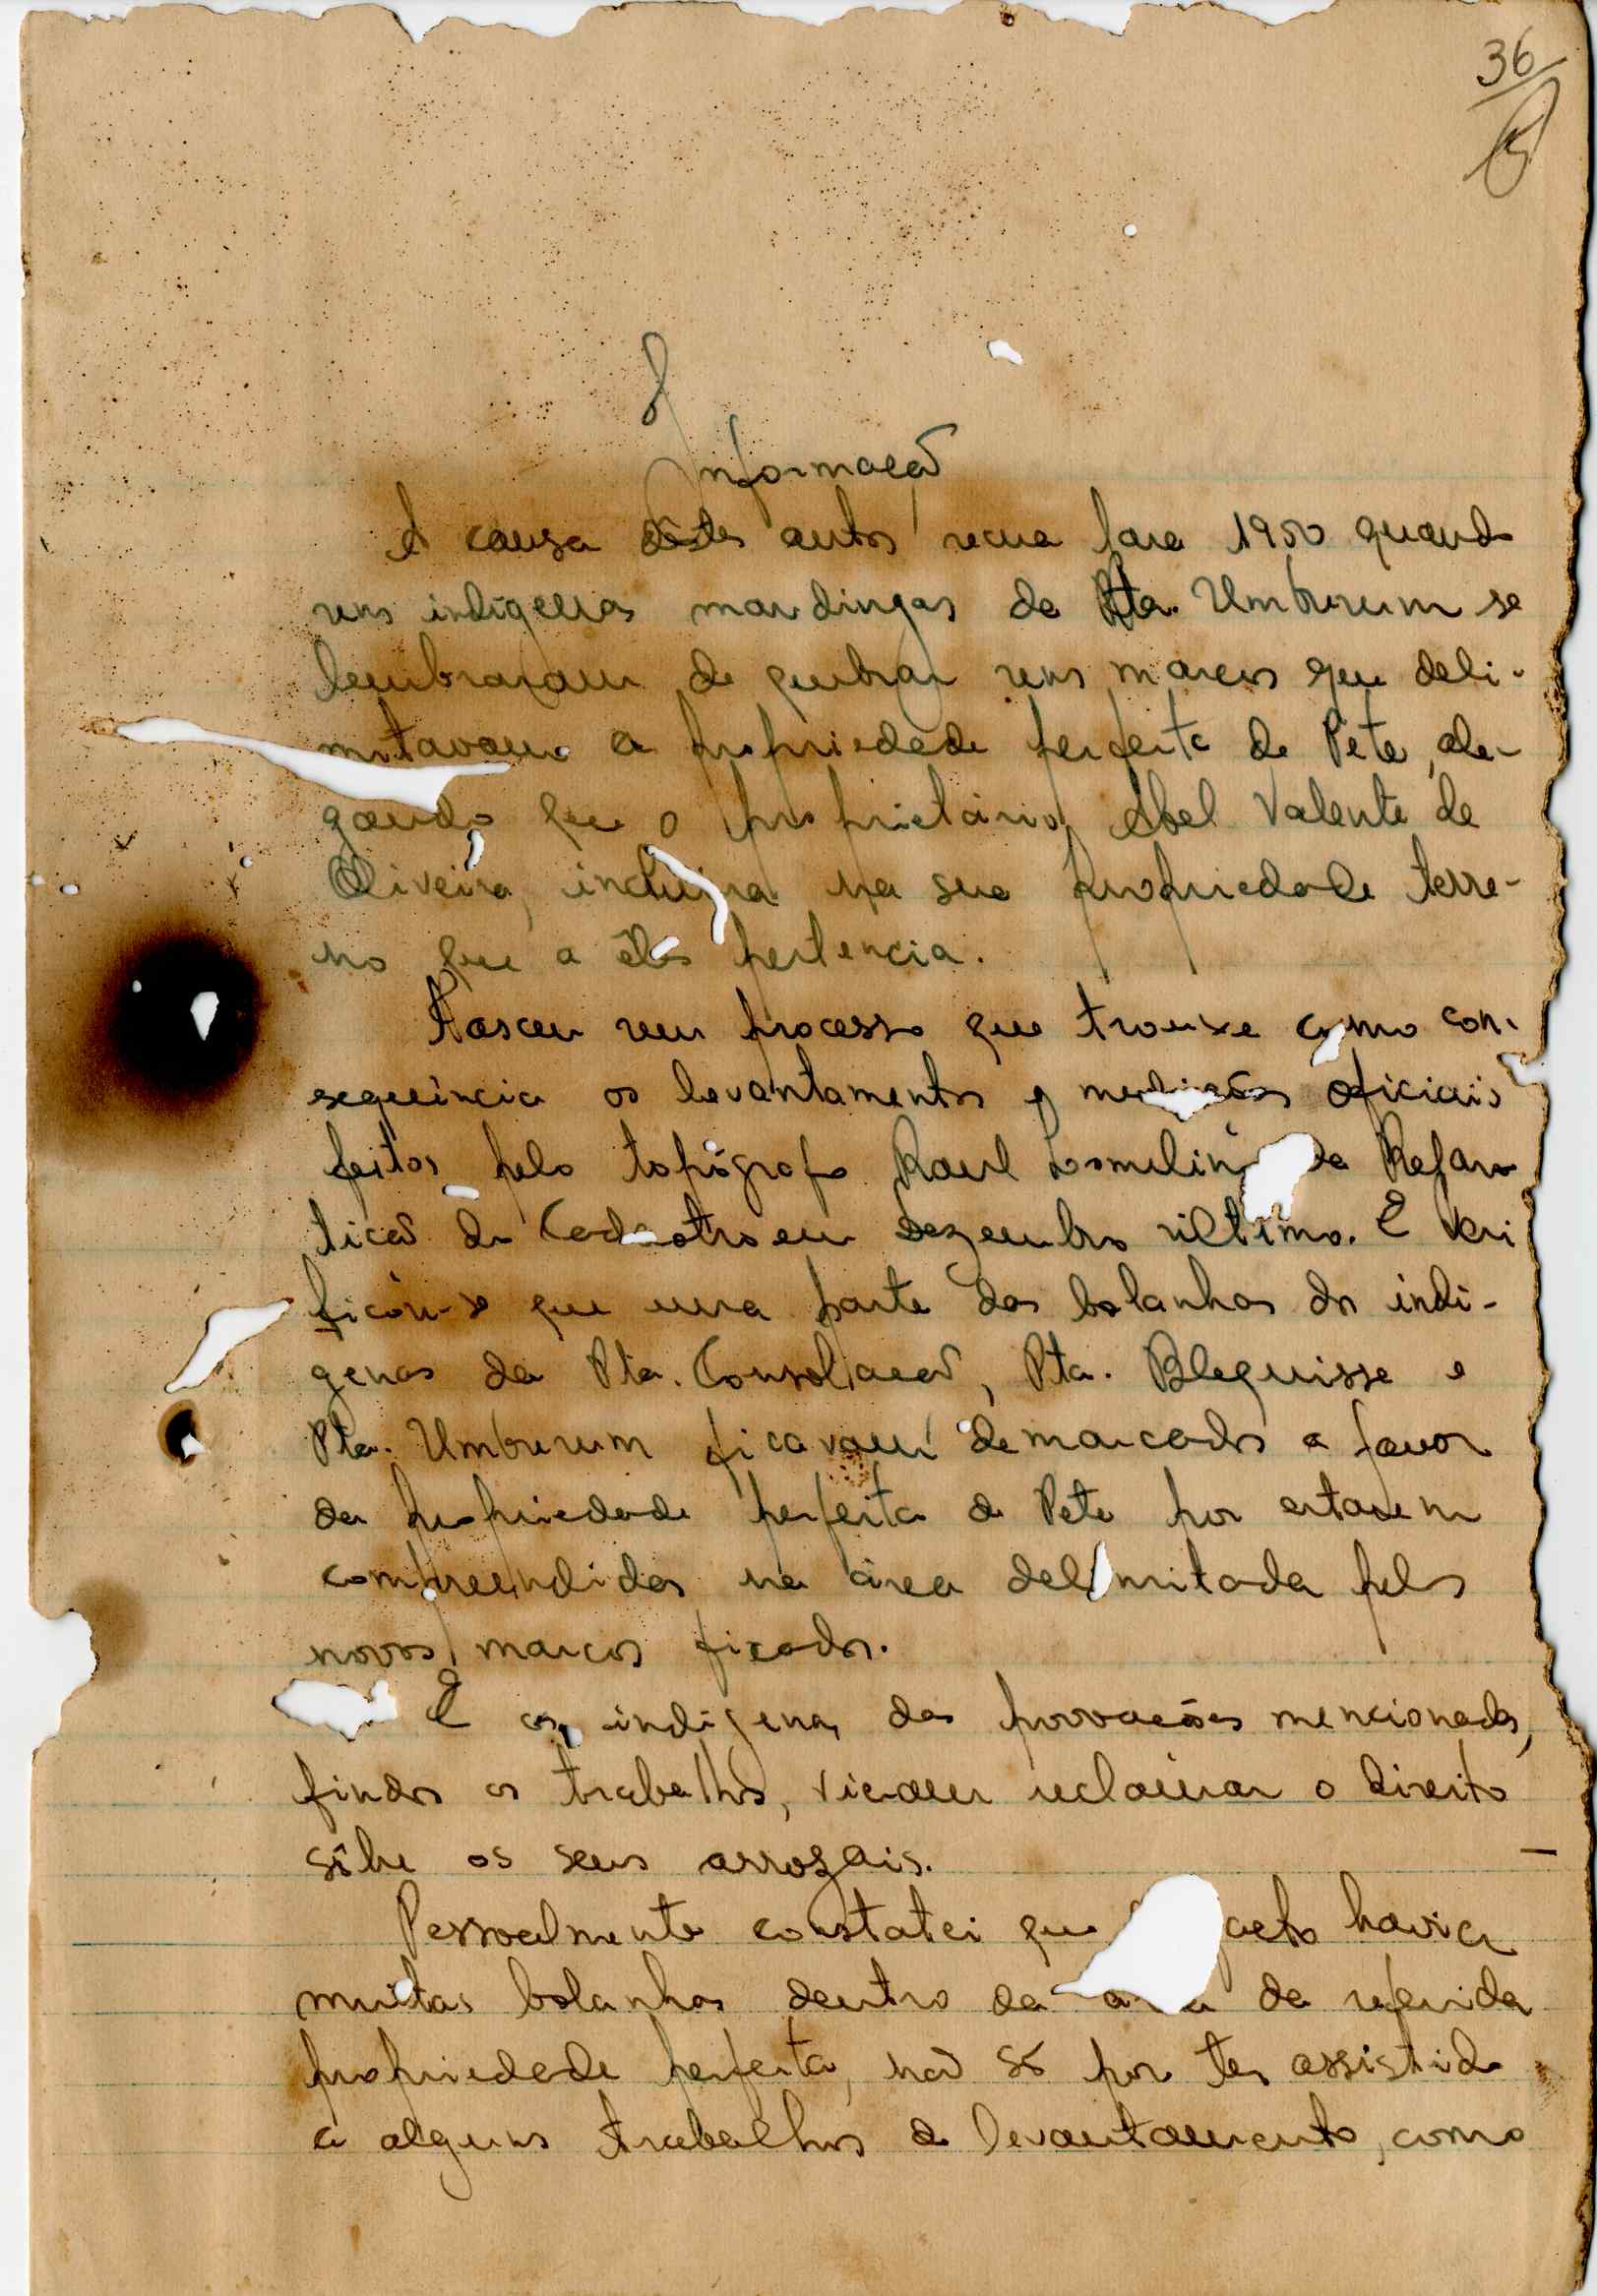 36
Informação
A causa dêstes autos recua para 1950 quando
uns indígenas mandingas de Pta. Umburum se
lembraram de quebrar uns marcos que deli-
mitavam a propriedade perfeita de Pete, ale-
gando que o proprietário, Abel Valente de
Oliveira, incluira na sua propriedade terre-
no que a êles pertencia.
Nasceu um processo que trouxe como con-
sequência os levantamentos e medições oficiais
feitos pelo topógrafo Raul da Repar
tição do Cadastro em Dezembro último. E veri
ficou-se que uma parte das bolanhas dos indí-
genas da Pta. Consolação, Pta. Bleguisse e
Pta. Umburum ficavam demarcados a favor
da propriedade perfeita de Pete por estarem
compreendidas na área delimitada pelos
novos marcos ficados.
E os indígenas das povoações mencionadas,
findos os trabalhos, vieram reclamar o direito
sôbre os seus arrozais.
Pessoalmente constatei que facto havia
muitas bolanhas dentro da área da referida
propriedade perfeita, não só por ter assistido
a alguns trabalhos de levantamento, como